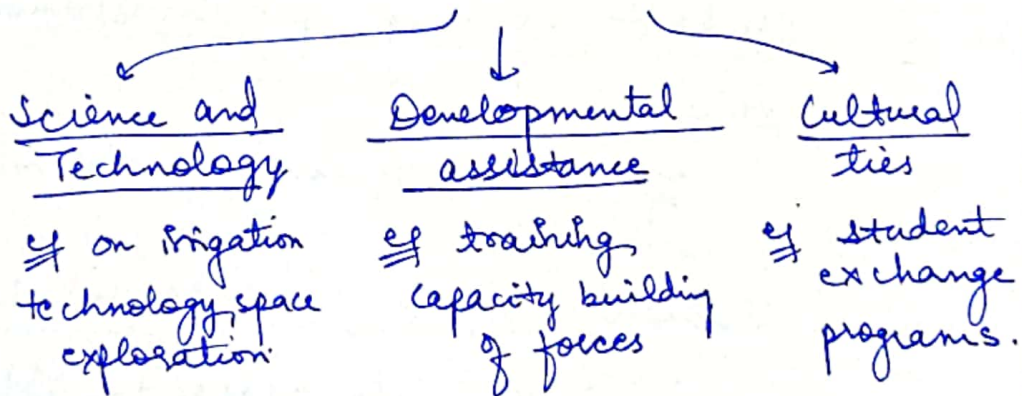 Science and
Technology
eg on irrigation
technology, space
exploration
Developmental
assistance
eg training,
capacity building
of forces
Cultural
ties
eg student
exchange
programs.